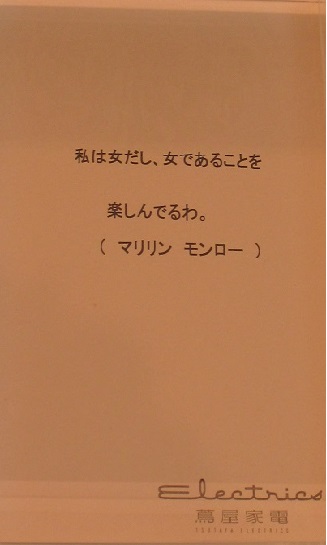 私は女だし、女であることを
楽しんでるわ。
( マリリン モンロー )
Electrics
蔦屋家電
TSUTAYA ELECTRICS